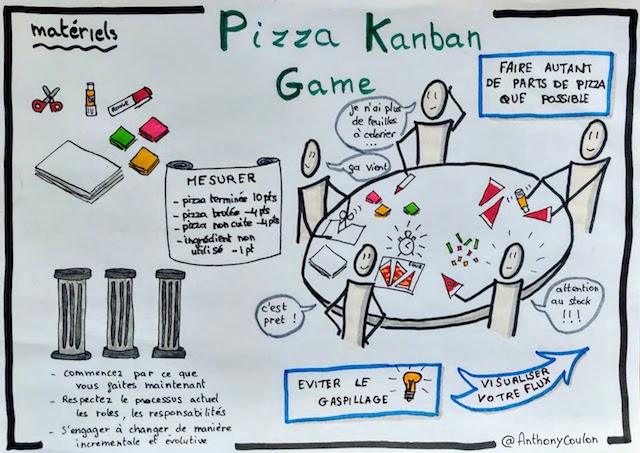 matériels
Pizza Kanban
Game
FAIRE AUTANT
DE PARTS DE PIZZA
QUE POSSIBLE
je n'ai plus
de feuilles
à colorier
...
ça vient
MESURER
- pizza terminée 10 pts
- pizza brulée -4 pts
- pizza non cuite -4 pts
- ingrédient non
utilisé -1 pt
FOUR
c'est
pret !
attention
au stock
!!!
- Commencez par ce que
vous faites maintenant
- Respectez le processus actuel
les roles, les responsabilités
- S'engager à changer de manière
incrementale et évolutive
EVITER LE
GASPILLAGE
VISUALISER
VOTRE FLUX
@AnthonyCoulon